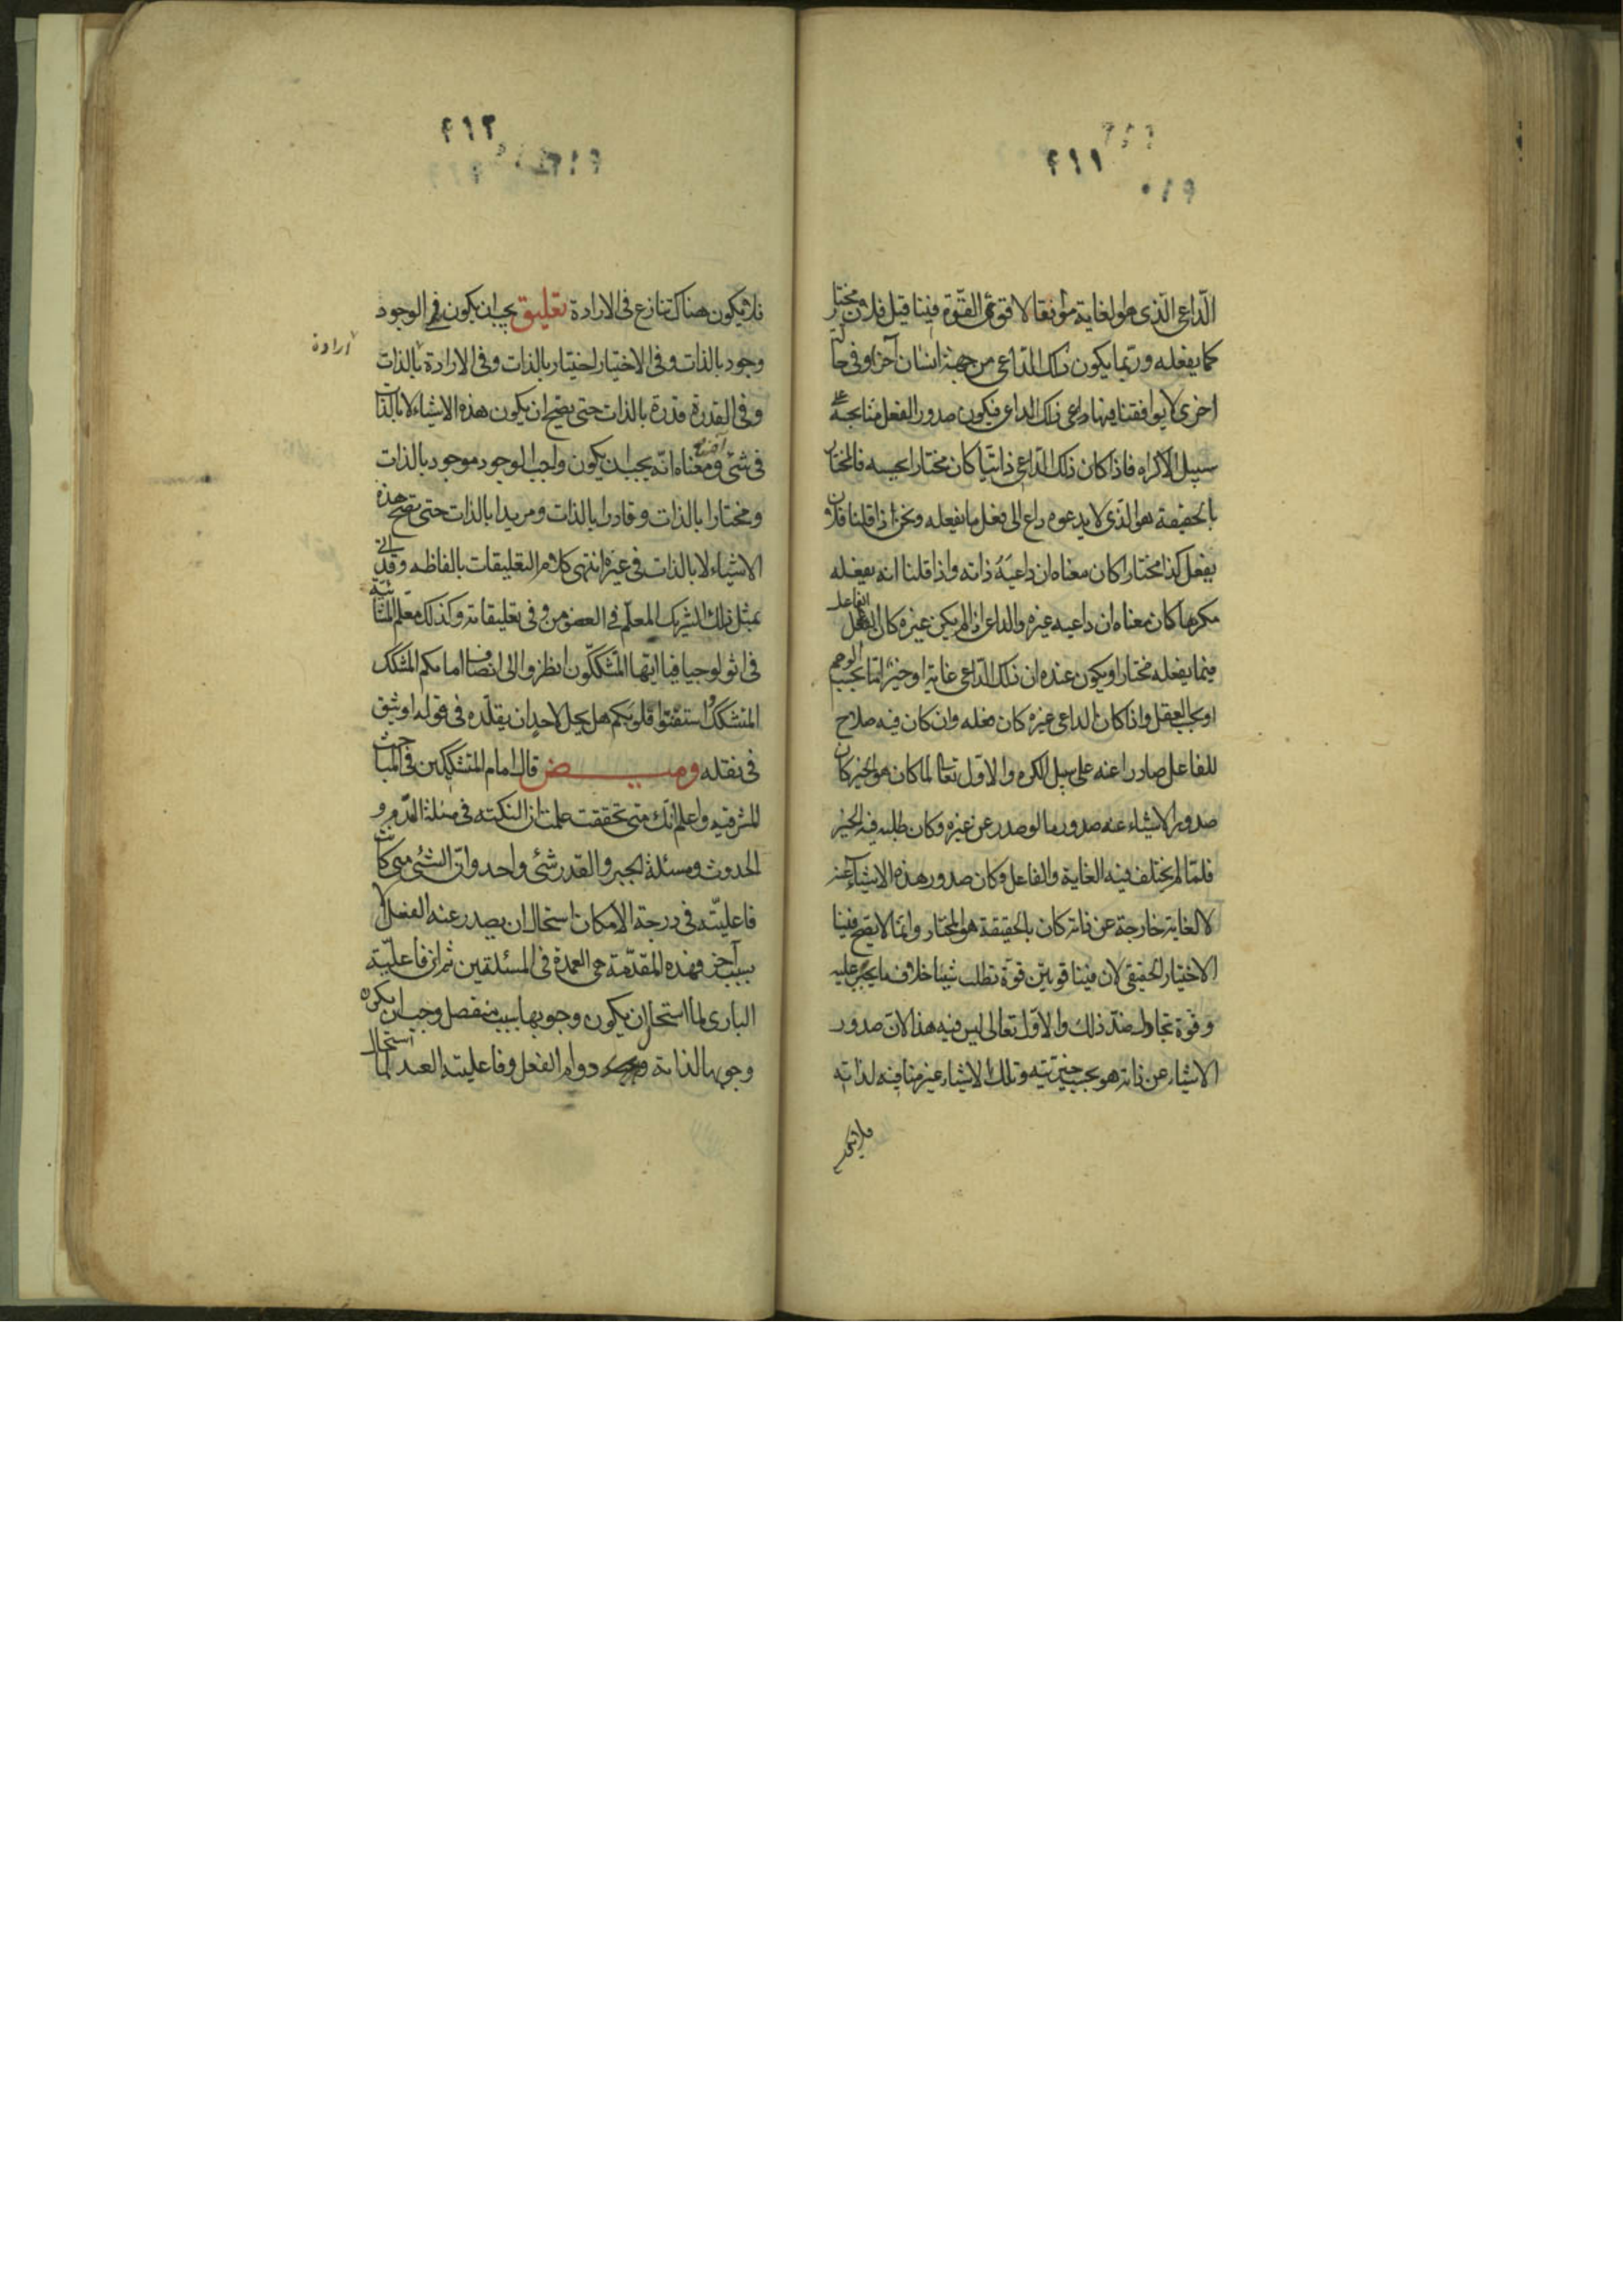 ٤١١
٦١٠
الدّاعي الّذي هو الغاية موافقا لاقوى القوّة فينا قيل فلان مختار
كما يفعله وربّما يكون ذلك الدّاعي من جهة انسان آخر او في حال
اخرى لا يوافقنا فيها داعي ذلك الداعي فيكون صدور الفعل منا بحسبه على
سبيل الاكراه فاذا كان ذلك الدّاعي ذاتيّا كان مختارا بحسبه فالمختار
بالحقيقة هو الّذي لا يدعوه داع الى فعل ما يفعله ونحن اذا قلنا فلان
يفعل كذا مختارا كان معناه ان داعيه ذاته واذا قلنا انه يفعله
مكرها كان معناه ان داعيه غيره والداعي اذا لم يكن غيره كان الفاعل
فيما يفعله مختارا ويكون عنده ان ذلك الدّاعي غاية او خير امّا بحسب الوهم
او بحسب العقل واذا كان الداعي غيره كان فعله وان كان فيه صلاح
للفاعل صادرا عنه على سبيل الكره والاوّل تعالى لما كان هو الخير كان
صدور الاشياء عنه صدورها لو صدر عن غيره وكان طلبه فيه الخير
فلمّا لم يختلف فيه الغاية والفاعل وكان صدور هذه الاشياء عنه
لا لغاية خارجة عن ذاته كان بالحقيقة هو المختار وانّما لا يصح فينا
الاختيار الحقيقي لان فينا قوتين قوّة تطلب شيئا خلاف ما يجبر عليه
وقوّة تحاول ضدّ ذلك والاوّل تعالى ليس فيه هذا لانّ صدور
الاشياء عن ذاته هو بحسب خيريّته وتلك الاشياء غير منافية لذاته
فلا يكون
٤١٢
فلا يكون هناك تنازع في الارادة تعليق يجب ان يكون في الوجود
وجود بالذات وفي الاختيار اختيار بالذات وفي الارادة بالذات
ارادة
وفي القدرة قدرة بالذات حتى يصحّ ان يكون هذه الاشياء لا بالذات
في شيء ومعناه انّه يجب ان يكون واجب الوجود موجود بالذات
ومختارا بالذات وقادرا بالذات ومريدا بالذات حتى تصحّ هذه
الاشياء لا بالذات في غيره انتهى كلام التعليقات بالفاظه وقد اتى
بمثل ذلك الشريك المعلّم في الفصوص وفي تعليقاته وكذلك معلّم المشائية
في اثولوجيا فيا ايّها المتشكّكون انظروا الى انصاف امامكم المشكّك
المتشكّك واستفتوا قلوبكم هل يحل لاحد ان يقلّده في قوله او يثق
في نقله وميض قال امام المتشكّكين في المباحث
المشرقية واعلم انّك متى تحققت علمت ان النكتة في مسئلة القدم و
الحدوث ومسئلة الجبر والقدر شيء واحد وانّ الشيء متى كانت
فاعليّته في درجة الامكان استحال ان يصدر عنه الفعل الا
بسبب آخر فهذه المقدّمة هي العمدة في المسئلتين ثم ان فاعليّة
الباري لما استحال ان يكون وجوبها بسبب منفصل وجب ان يكون
وجوبها لذاته دوام الفعل وفاعلية العبد لما استحال